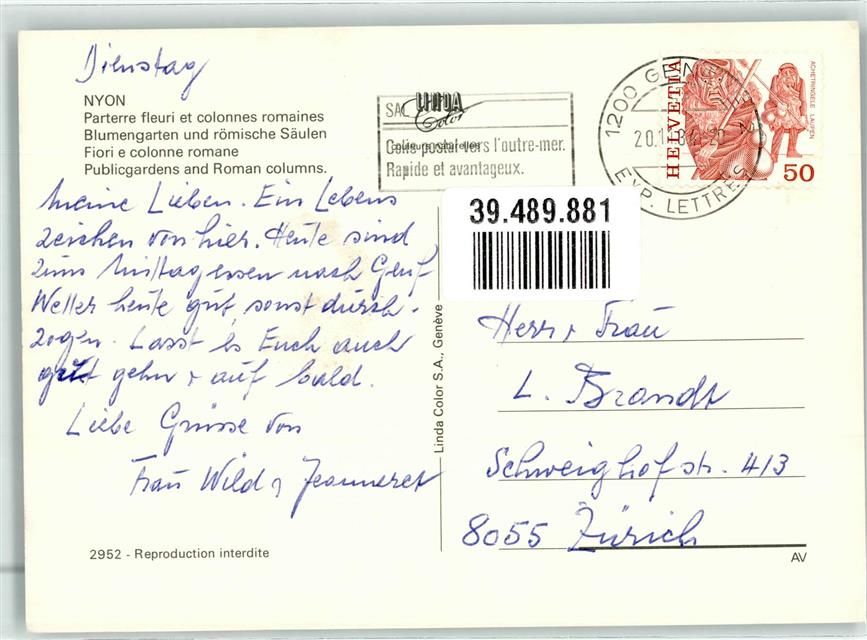 Dienstag
NYON
Parterre fleuri et colonnes romaines
Blumengarten und römische Säulen
Fiori e colonne romane
Publicgardens and Roman columns.
Meine Lieben. Ein Lebens
zeichen von hier. Heute sind
zum Mittagessen nach Genf
Wetter heute gut, sonst durch-
zogen. Lasst es Euch auch
gut gehn + auf bald.
Liebe Grüsse von
Frau Wild + Jeanneret
2952 - Reproduction interdite
Linda Color S.A., Genève
LINDA
Color
SAL
Colis postal vers l'outre-mer.
Rapide et avantageux.
1200 GENÈVE 2
20.1
EXP. LETTRES
HELVETIA
ACHETRINGELE LAUPEN
50
39.489.881
Herr + Frau
L. Brandt
Schweighofstr. 413
8055 Zürich
AV